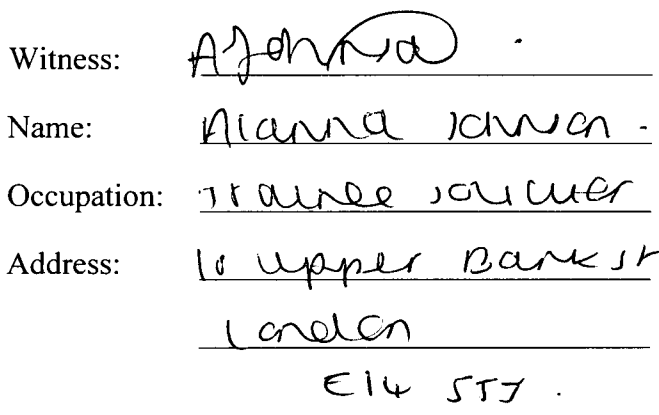 Witness:
Name: Alanna
Occupation: Trainee Solicitor
Address: 10 Upper Bank St
London
E14 5JJ.